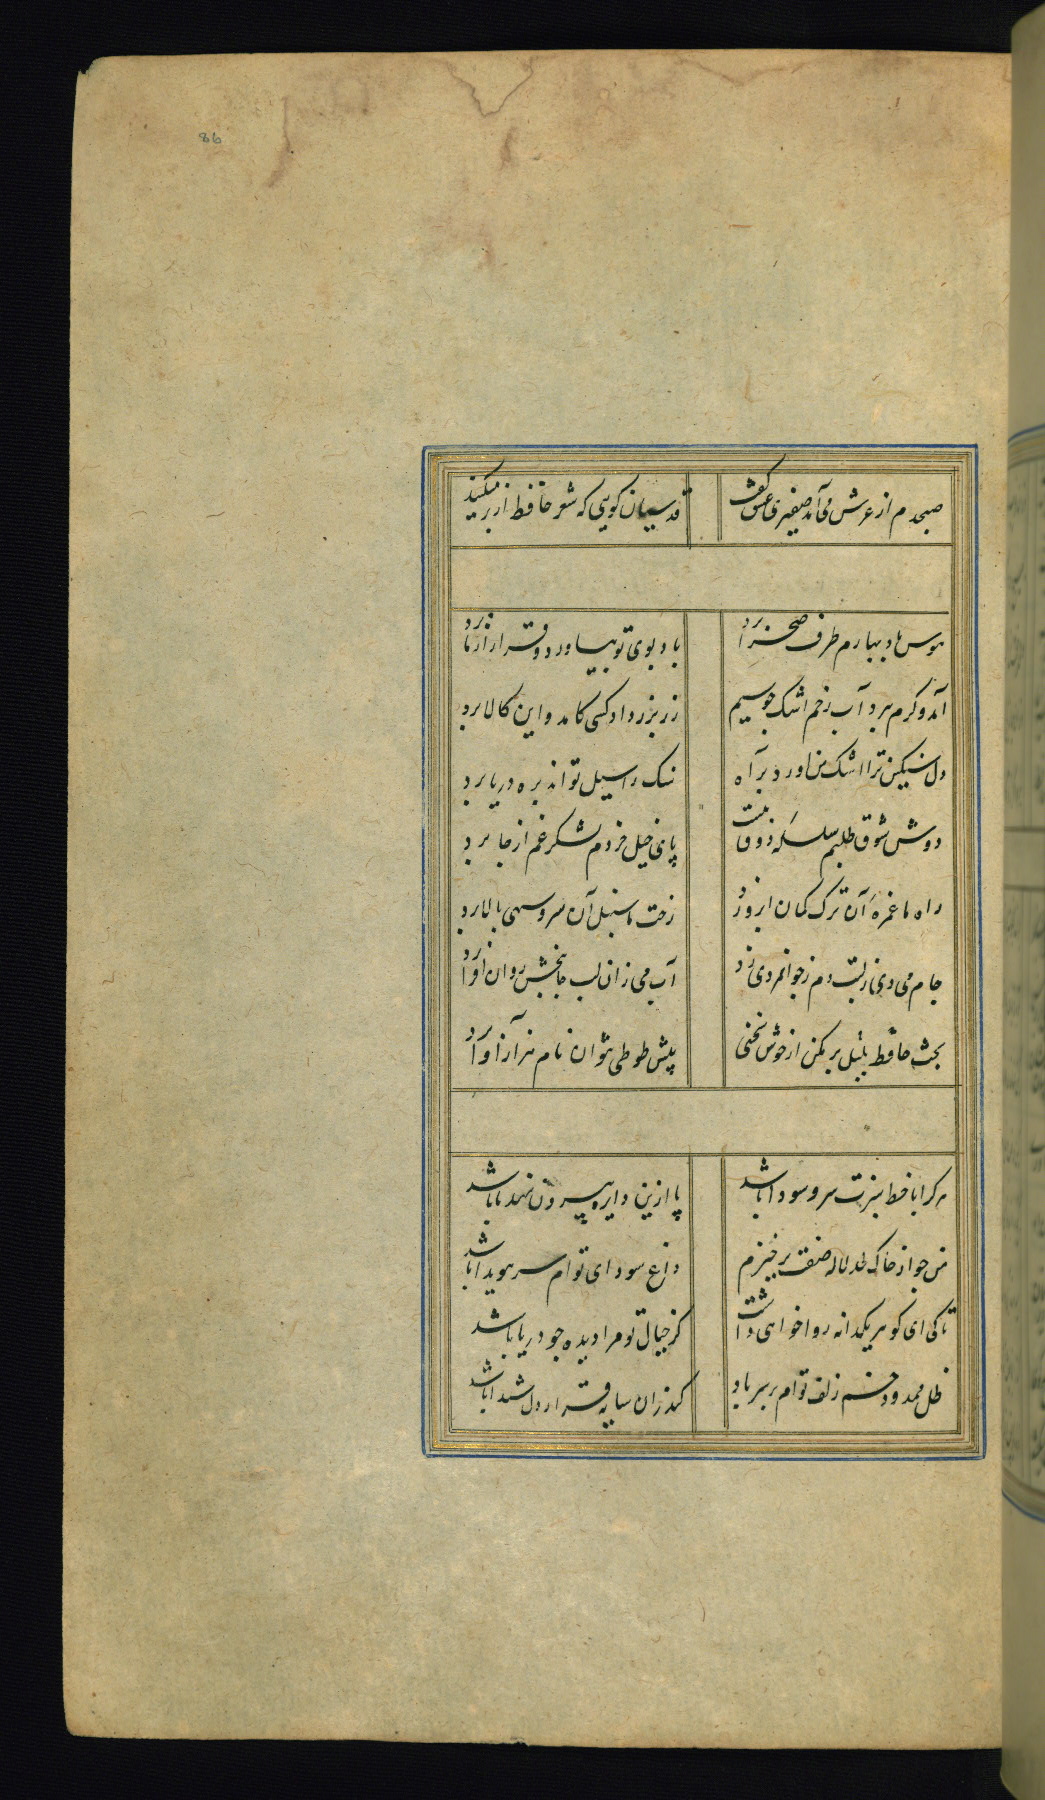 86
صبحدم از عرش می آمد صفیری عقل گفت قدسیان گویی که شعر حافظ از بر میکنند
هوس باد بهارم طرف صحرا برد باد بوی تو بیاورد و قرار از ما برد
آمد و گرم ببرد آب رخم اشک چو سیم زر بزر داد کسی کامد و این کالا برد
دل سنگین ترا اشک من اورد براه سنک را سیل تواند بره دریا برد
دوش شوق طلبم سلسله ذوق بست پای خیل خردم لشکر غم از جا برد
راه ما غمزه آن ترک کمان ابرو زد رخت ما سنبل آن سرو سهی بالا برد
جام می دی ز لبت دم ز جوانمردی زد آب می زان لب جانبخش روان او را برد
بحث حافظ بلبل بر مکن از خوش سخنی پیش طوطی نتوان نام هزار آوا برد
هر کرا با خط سبزت سر و سودا باشد پا ازین دایره بیرون ننهد تا باشد
من چو از خاک لحد لاله صفت برخیزم داغ سودای توام سر هویدا باشد
تا کی ای گوهر یکدانه روا خواهی داشت کز خیال تو مرا دیده چو دریا باشد
ظل ممدود خم زلف توام بر سر باد کندران سایه قرار دل شیدا باشد